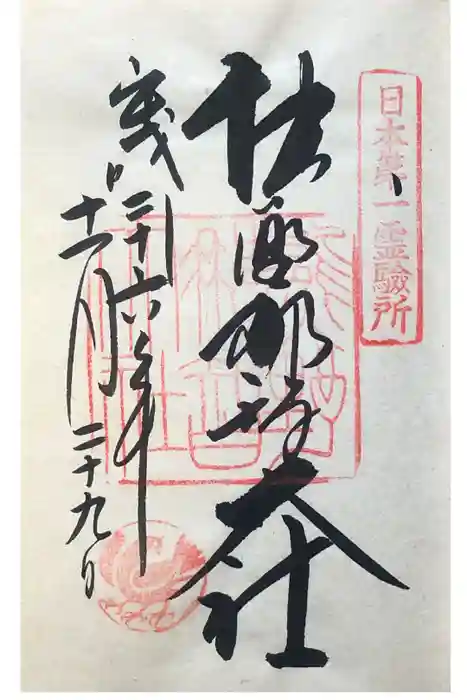 日本第一霊驗所
熊野那智大社
二十六年
十一月二十九日